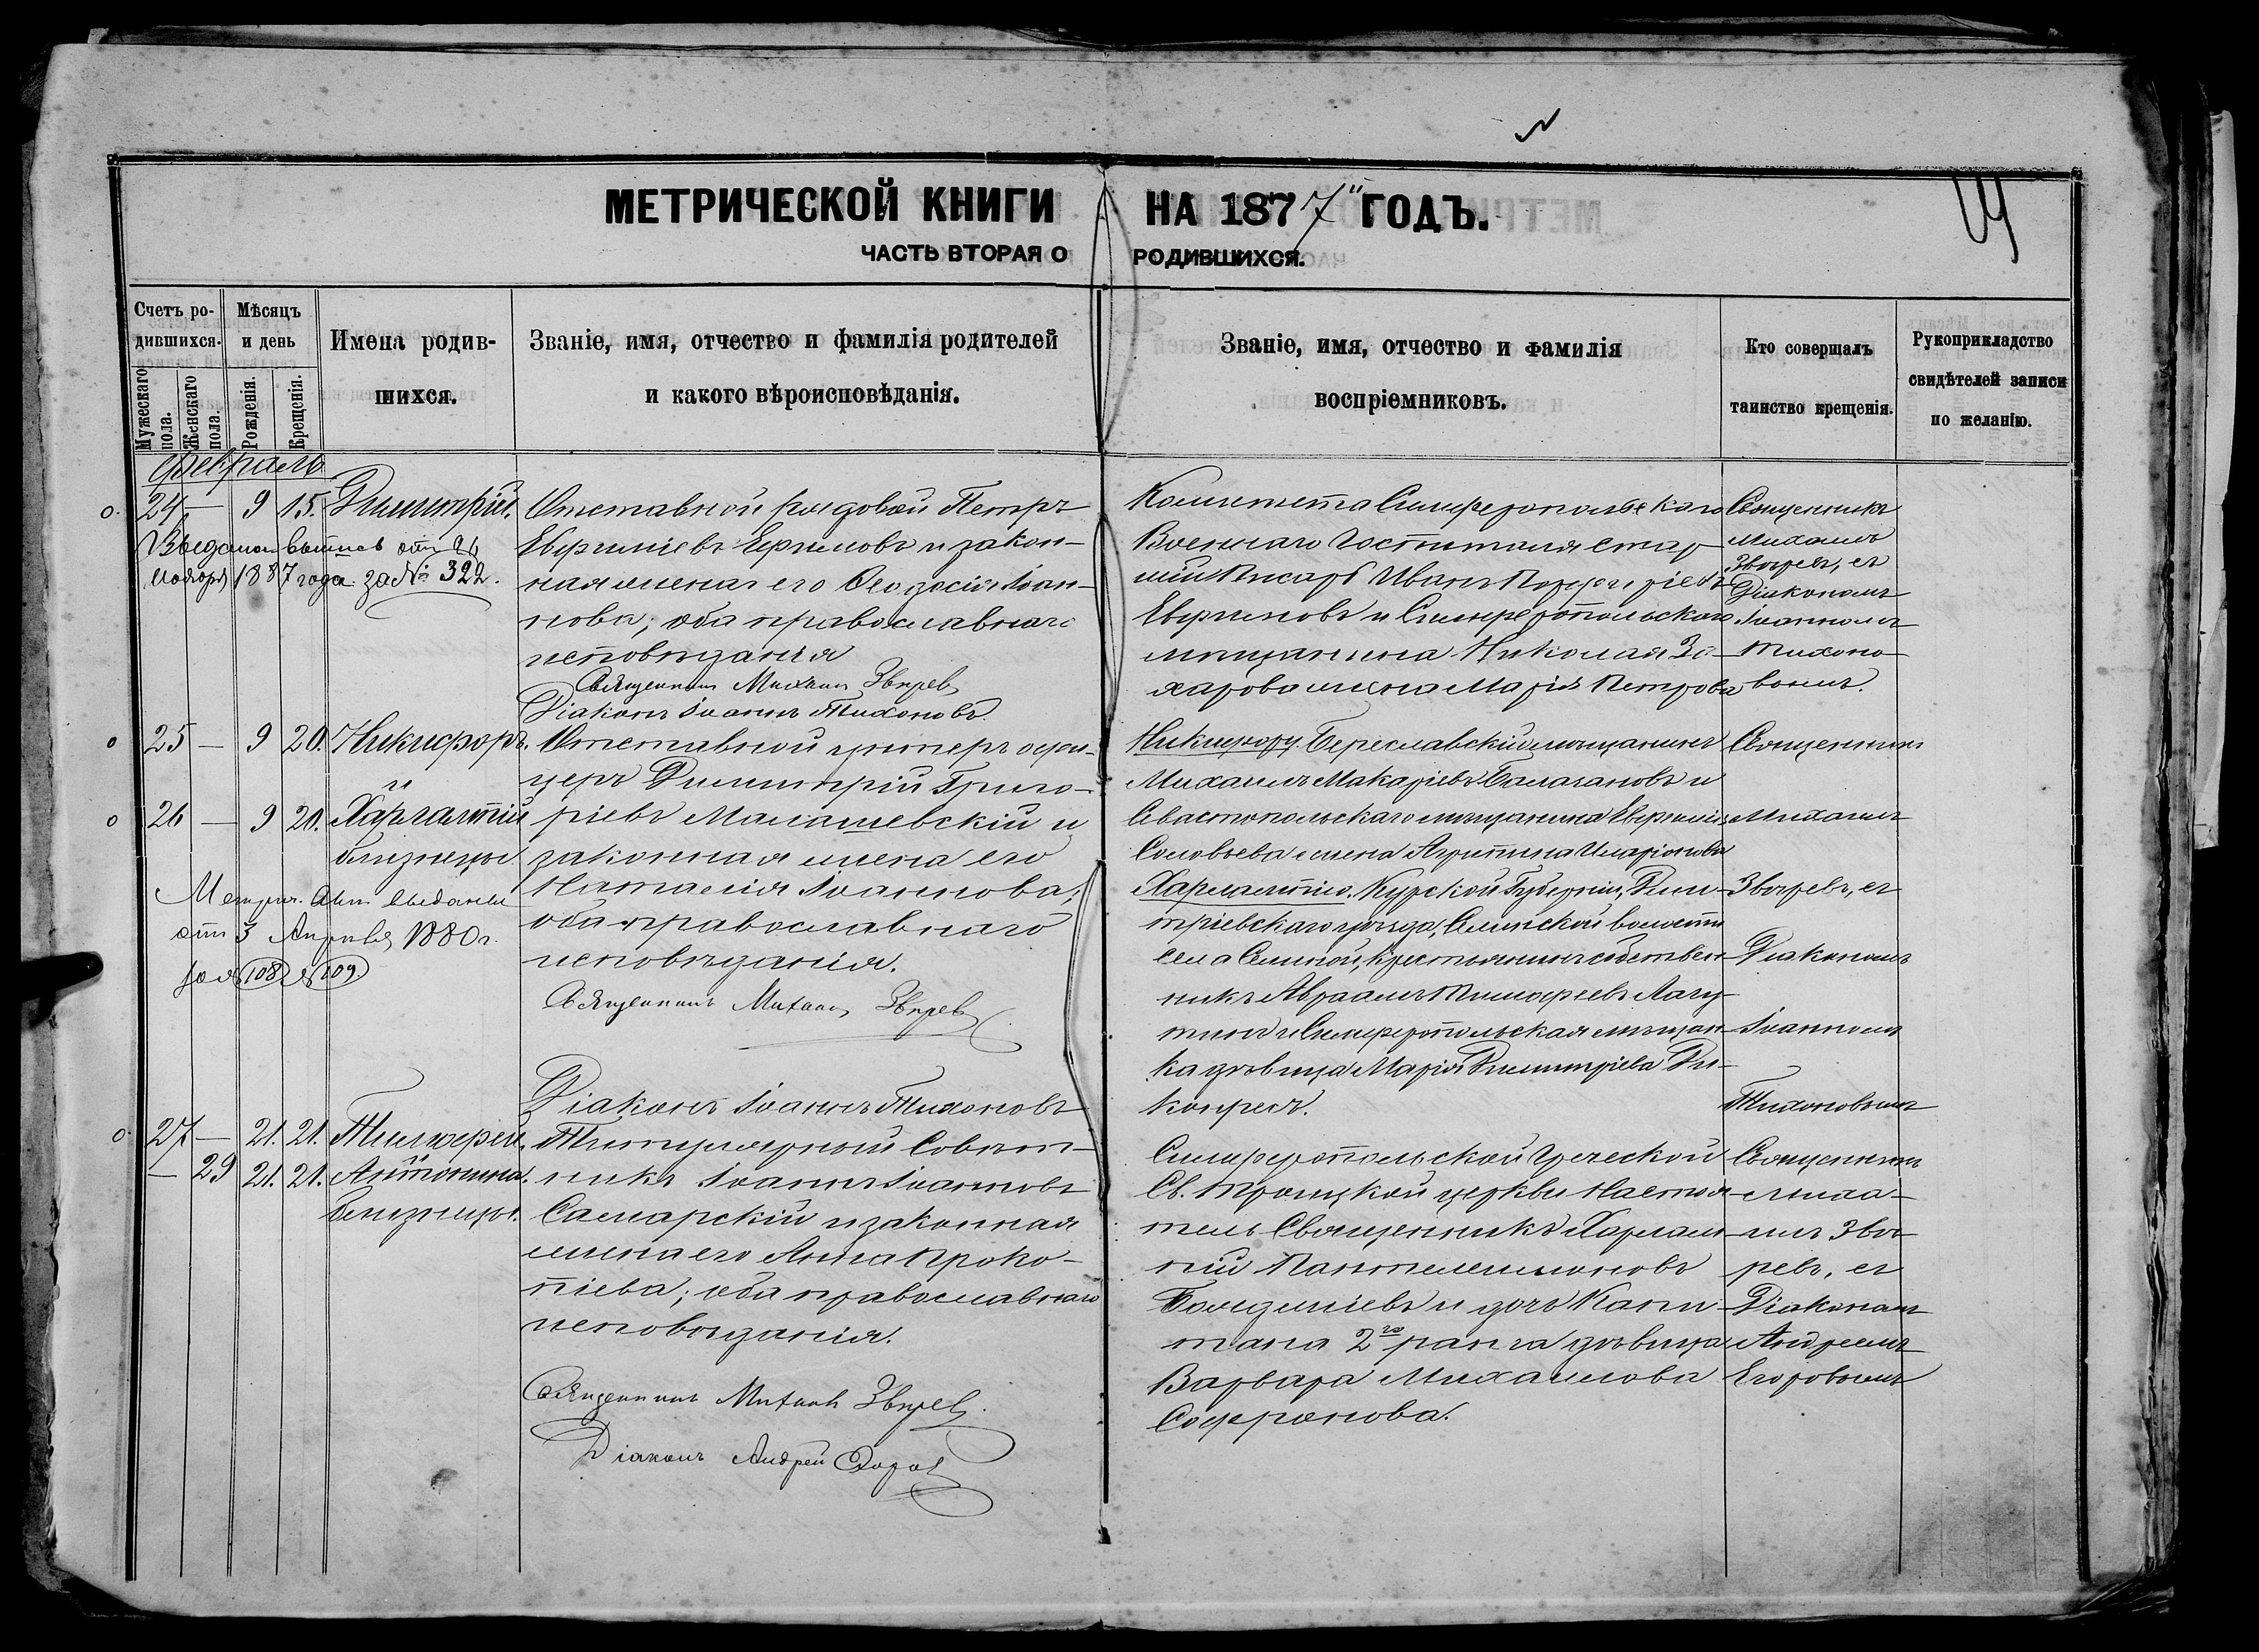 МЕТРИЧЕСКОЙ КНИГИ НА 1877 ГОДЪ.
ЧАСТЬ ВТОРАЯ О РОДИВШИХСЯ.
Счетъ ро-
дившихся.
Мужескаго пола.
Женскаго пола.
Мѣсяцъ
и день
Рожденія.
Крещенія.
Имена родив-
шихся.
Званіе, имя, отчество и фамилія родителей
и какого вѣроисповѣданія.
Званіе, имя, отчество и фамилія
воспріемниковъ.
Кто совершалъ
таинство крещенія.
Рукоприкладство
свидѣтелей записи
по желанію.
февраль
24 — 9 15. Димитрій.
Выдана выпись отъ 26
ноября 1887 года за № 322.
Отставной рядовой Петръ
Евфиміевъ Ефимовъ и закон-
ная жена его Ѳеодосія Іоан-
нова; оба православнаго
исповѣданія
Священникъ Михаилъ Звѣревъ
Діаконъ Іоаннъ Тихоновъ.
Комитета Симферопольскаго
Военнаго Госпиталя стар-
шій Писарь Иванъ Порфиріевъ
Евфимовъ и Симферопольскаго
мѣщанина Николая За-
харова жена Марія Петрова
Священникъ
Михаилъ
Звѣревъ, съ
Діакономъ
Іоанномъ
Тихоно-
вымъ.
25 — 9 20. Никифоръ
и
26 — 9 20. Харлампій
близнецы
Метрич. акт. выданы
отъ 3 Апрѣля 1880 г.
за № 108 и 109
Отставной унтеръ офи-
церъ Димитрій Григо-
ріевъ Малашевскій и
законная жена его
Наталія Іоаннова;
оба православнаго
исповѣданія.
Священникъ Михаилъ Звѣревъ
Діаконъ Іоаннъ Тихоновъ
Никифору. Береславскій мѣщанинъ
Михаилъ Макаріевъ Балагановъ и
Севастопольскаго мѣщанина Евфимія
Соловьева жена Агрипина Иларіонова
Харлампію. Курской Губерніи, Дми-
тріевскаго уѣзда, Селинской волости
села Селиной, крестьянинъ собствен-
никъ Авраамъ Тимофеевъ Лагу-
тинъ и Симферопольская мѣщан-
ка дѣвица Марія Димитріева Ди-
Священникъ
Михаилъ
Звѣревъ, съ
Діакономъ
Іоанномъ
Тихоновымъ
27 — 21. 21. Тимофей.
— 29 21. 21. Антонина.
близнецы.
Титулярный Совѣт-
никъ Іоаннъ Іоанновъ
Самарскій и законная
жена его Анна Проко-
піева; оба православнаго
исповѣданія.
Священникъ Михаилъ Звѣревъ.
Діаконъ Андрей
Симферопольской Греческой
Св. Троицкой церкви Настоя-
тель Священникъ Харлам-
пій Пантелеимоновъ
и дочь Капи-
тана 2го ранга дѣвица
Варвара Михаилова
Софронова.
Священникъ
Миха-
илъ Звѣ-
ревъ, съ
Діакономъ
Андреемъ
Егоровымъ